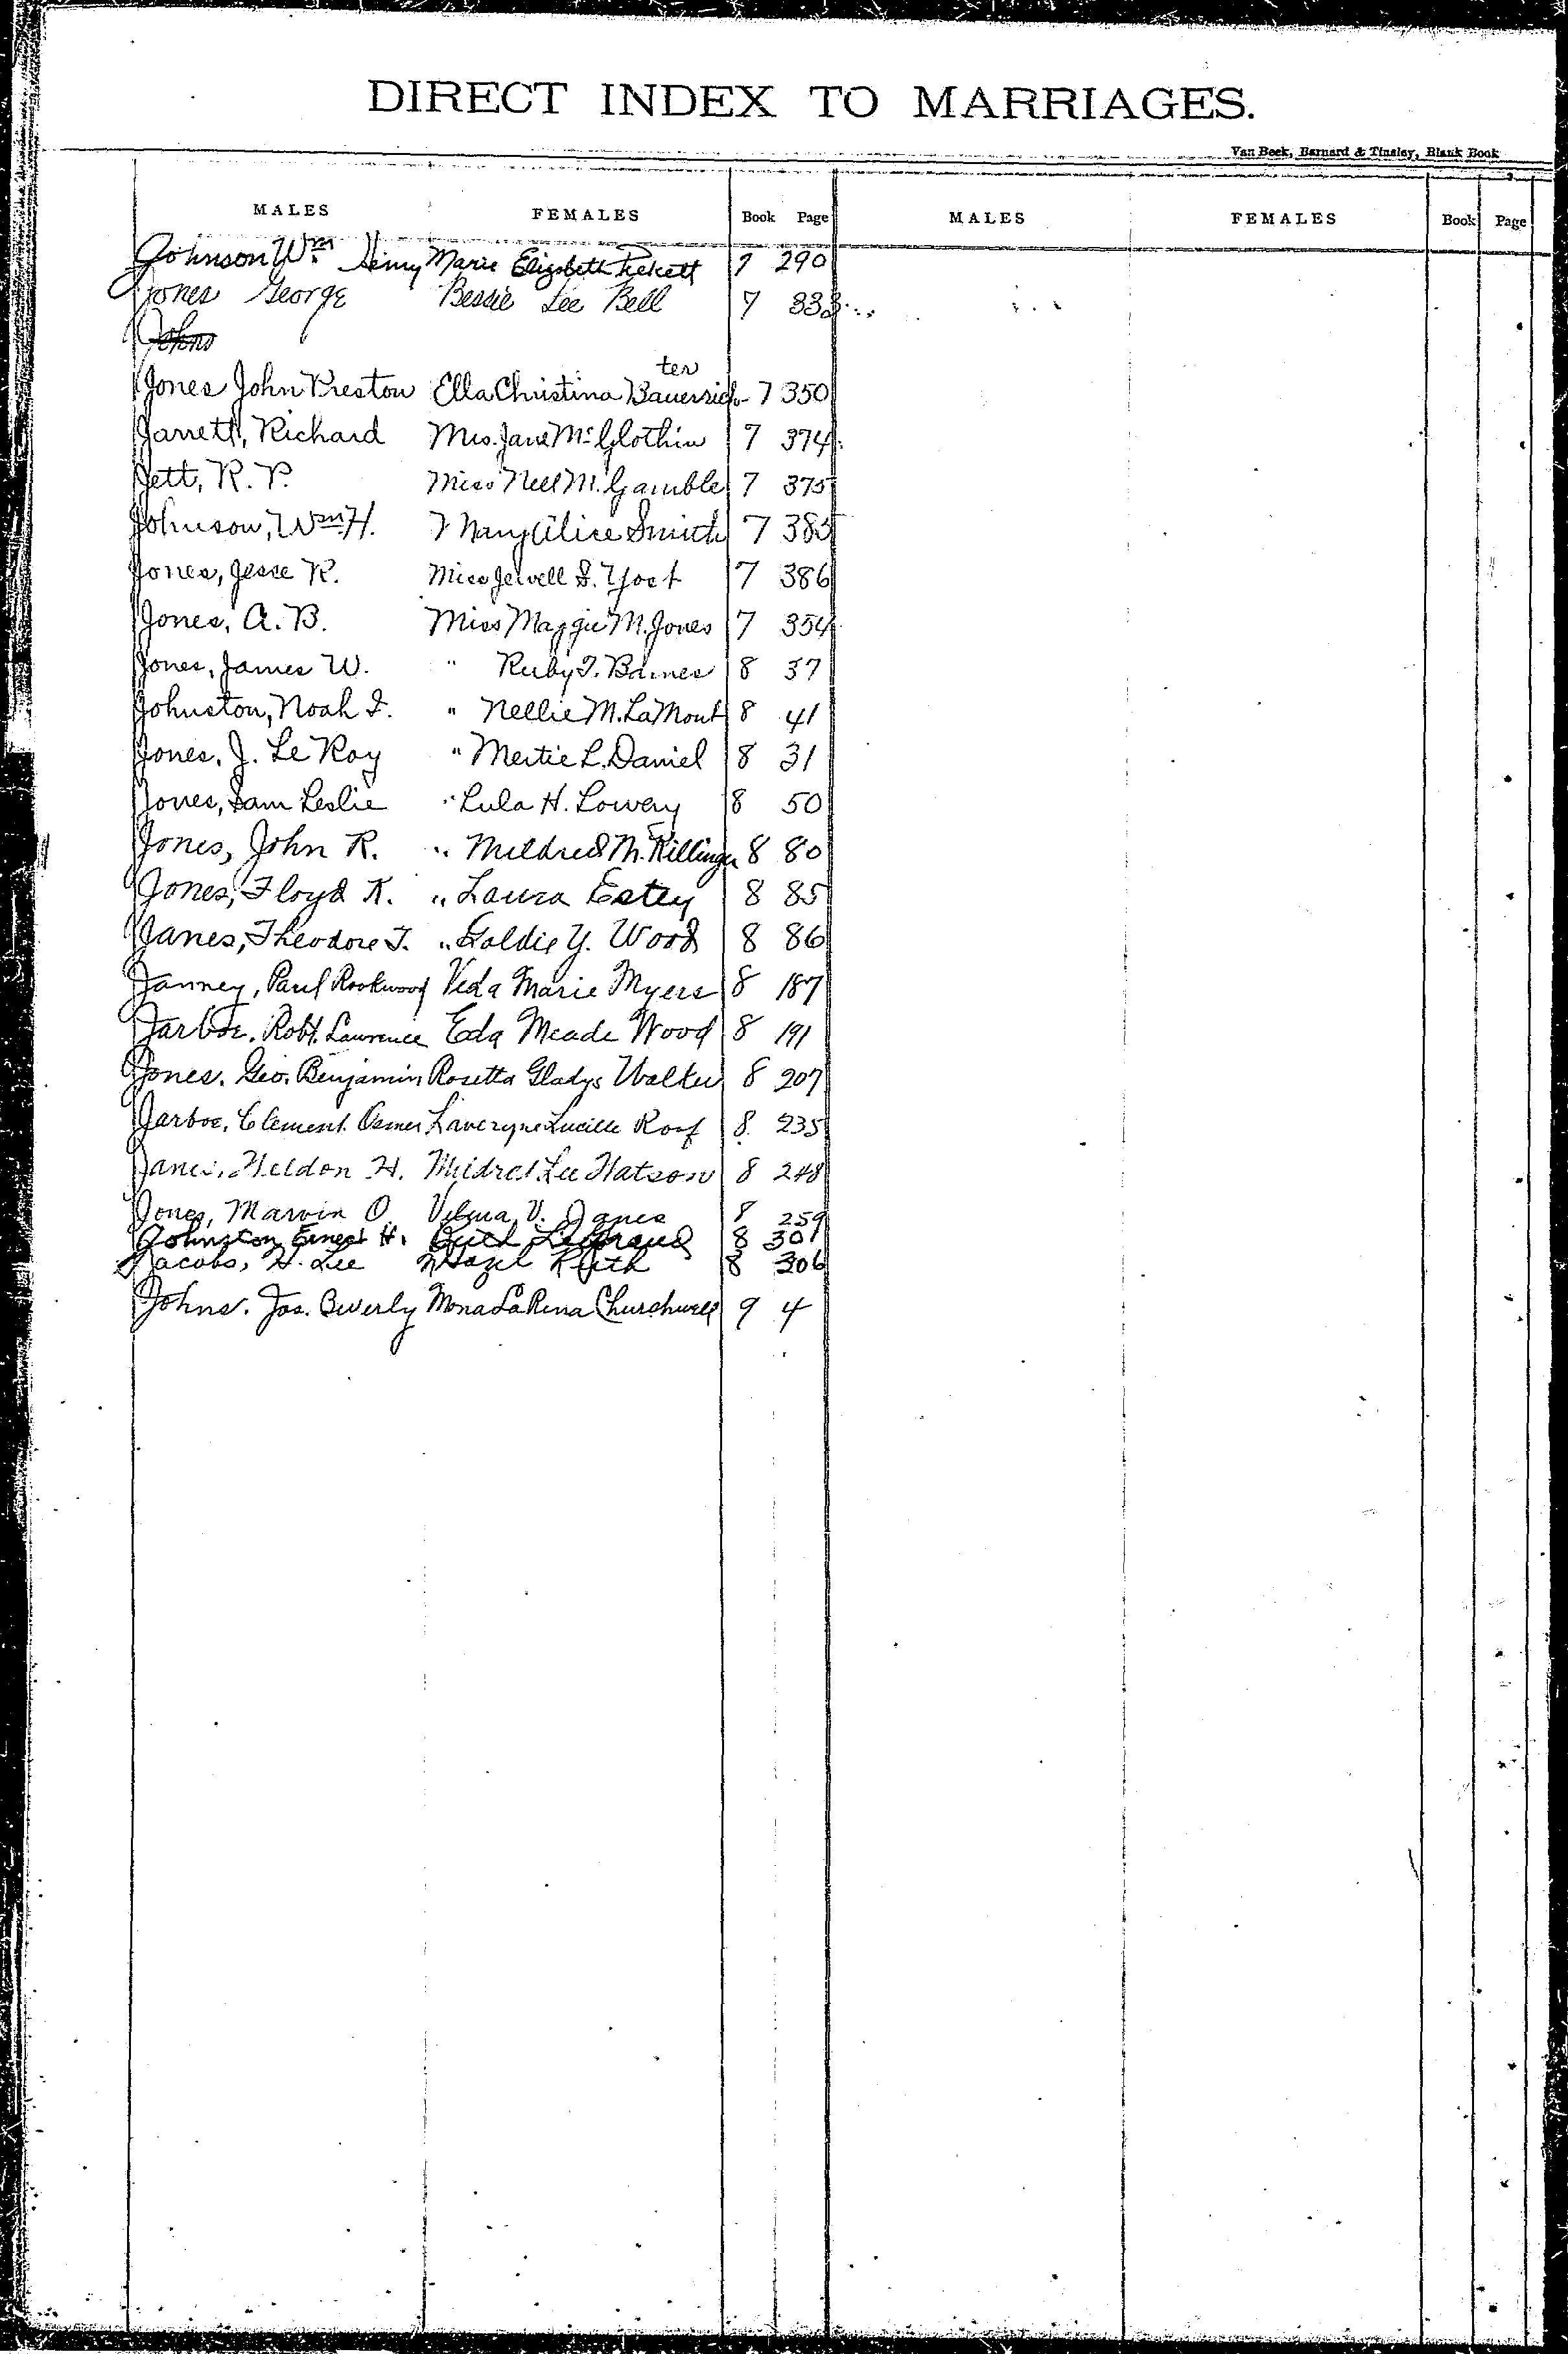 DIRECT INDEX TO MARRIAGES.
Van Beek, Barnard & Tinsley, Blank Book
MALES FEMALES Book Page MALES FEMALES Book Page
Johnson Wm. Henry Marie Elizabeth Pickett 7 290
Jones George Bessie Lee Bell 7 333
Johns
ter
Jones John Preston Ella Christina Bauersich 7 350
Jarrett, Richard Mrs. Jane McGlothin 7 374
Jett, R. P. Miss Nell M. Gamble 7 375
Johnson, Wm. H. Mary Alice Smith 7 385
Jones, Jesse R. Miss Jewell S. Yost 7 386
Jones, A. B. Miss Maggie M. Jones 7 354
Jones, James W. " Ruby T. Barnes 8 37
Johnston, Noah I. " Nellie M. LaMont 8 41
Jones, J. Le Roy " Mertie L. Daniel 8 31
Jones, Sam Leslie " Lula H. Lowery 8 50
Jones, John R. " Mildred M. Killinger 8 80
Jones, Floyd K. " Laura Estey 8 85
Janes, Theodore T. " Goldie Y. Wood 8 86
Janney, Paul Rookwood Veda Marie Myers 8 187
Jarboe, Robt. Lawrence Eda Meade Wood 8 191
Jones, Geo. Benjamin Rosetta Gladys Walker 8 207
Jarboe, Clement Osmer Laveryne Lucille Roof 8 235
Janes, Weldon H. Mildred Lee Watson 8 248
Jones, Marvin O. Velma V. Janes 8 259
Johnston Ernest H. Ruth 8 301
Jacobs, H. Lee Hazel Keith 8 306
Johns, Jos. Beverly Mona LaRena Churchwell 9 4